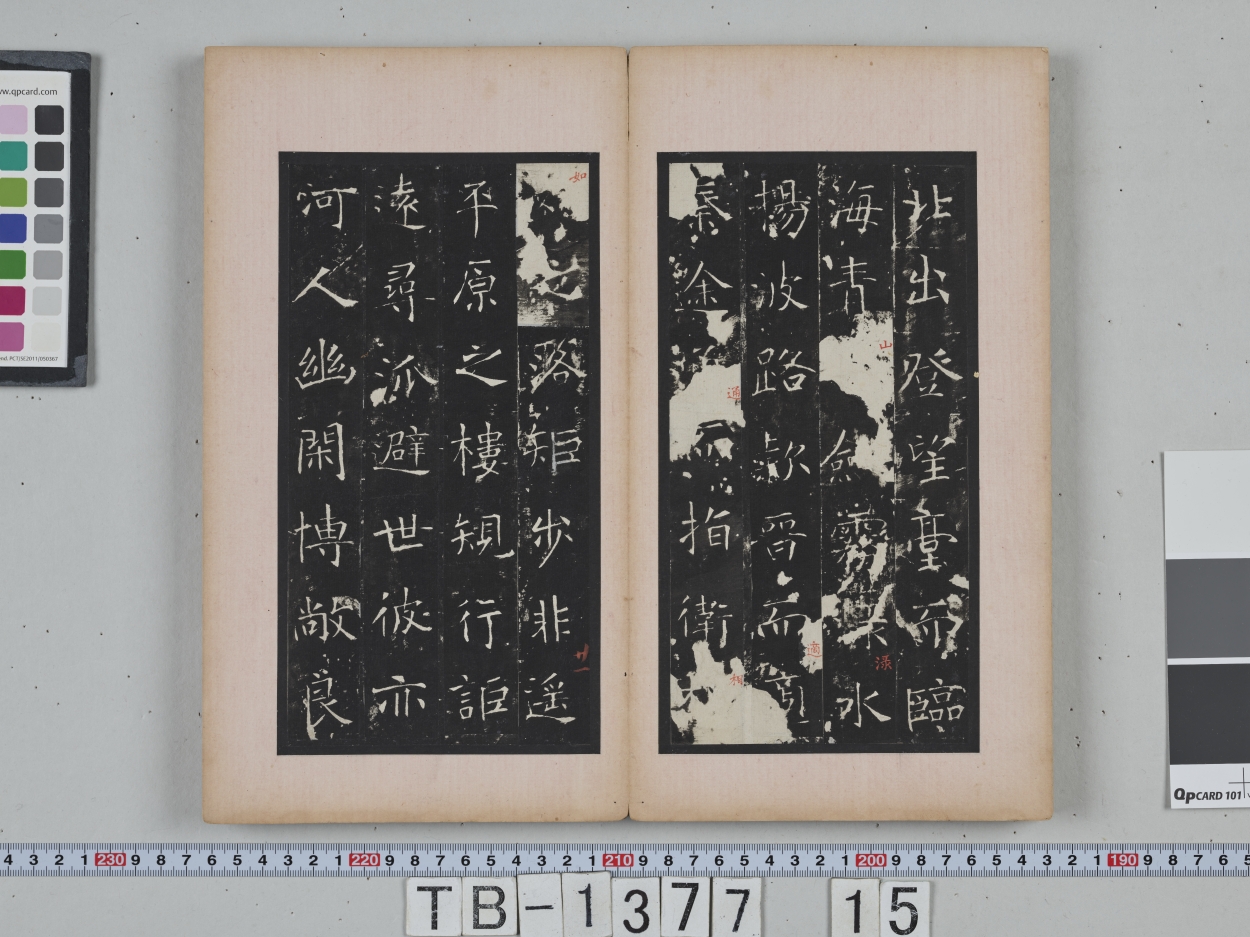 北出登望臺而臨
海青山斂霧渌水
揚波路款晉而適
秦途通而指衛
如之路矩步非遥
廿一
平原之樓規行詎
遠尋泒避世彼亦
河人幽閑博敞良
www.qpcard.com
QPCARD 101
4 3 2 1 230 9 8 7 6 5 4 3 2 1 220 9 8 7 6 5 4 3 2 1 210 9 8 7 6 5 4 3 2 1 200 9 8 7 6 5 4 3 2 1 190 9 8 7 6 5
TB-1377 15